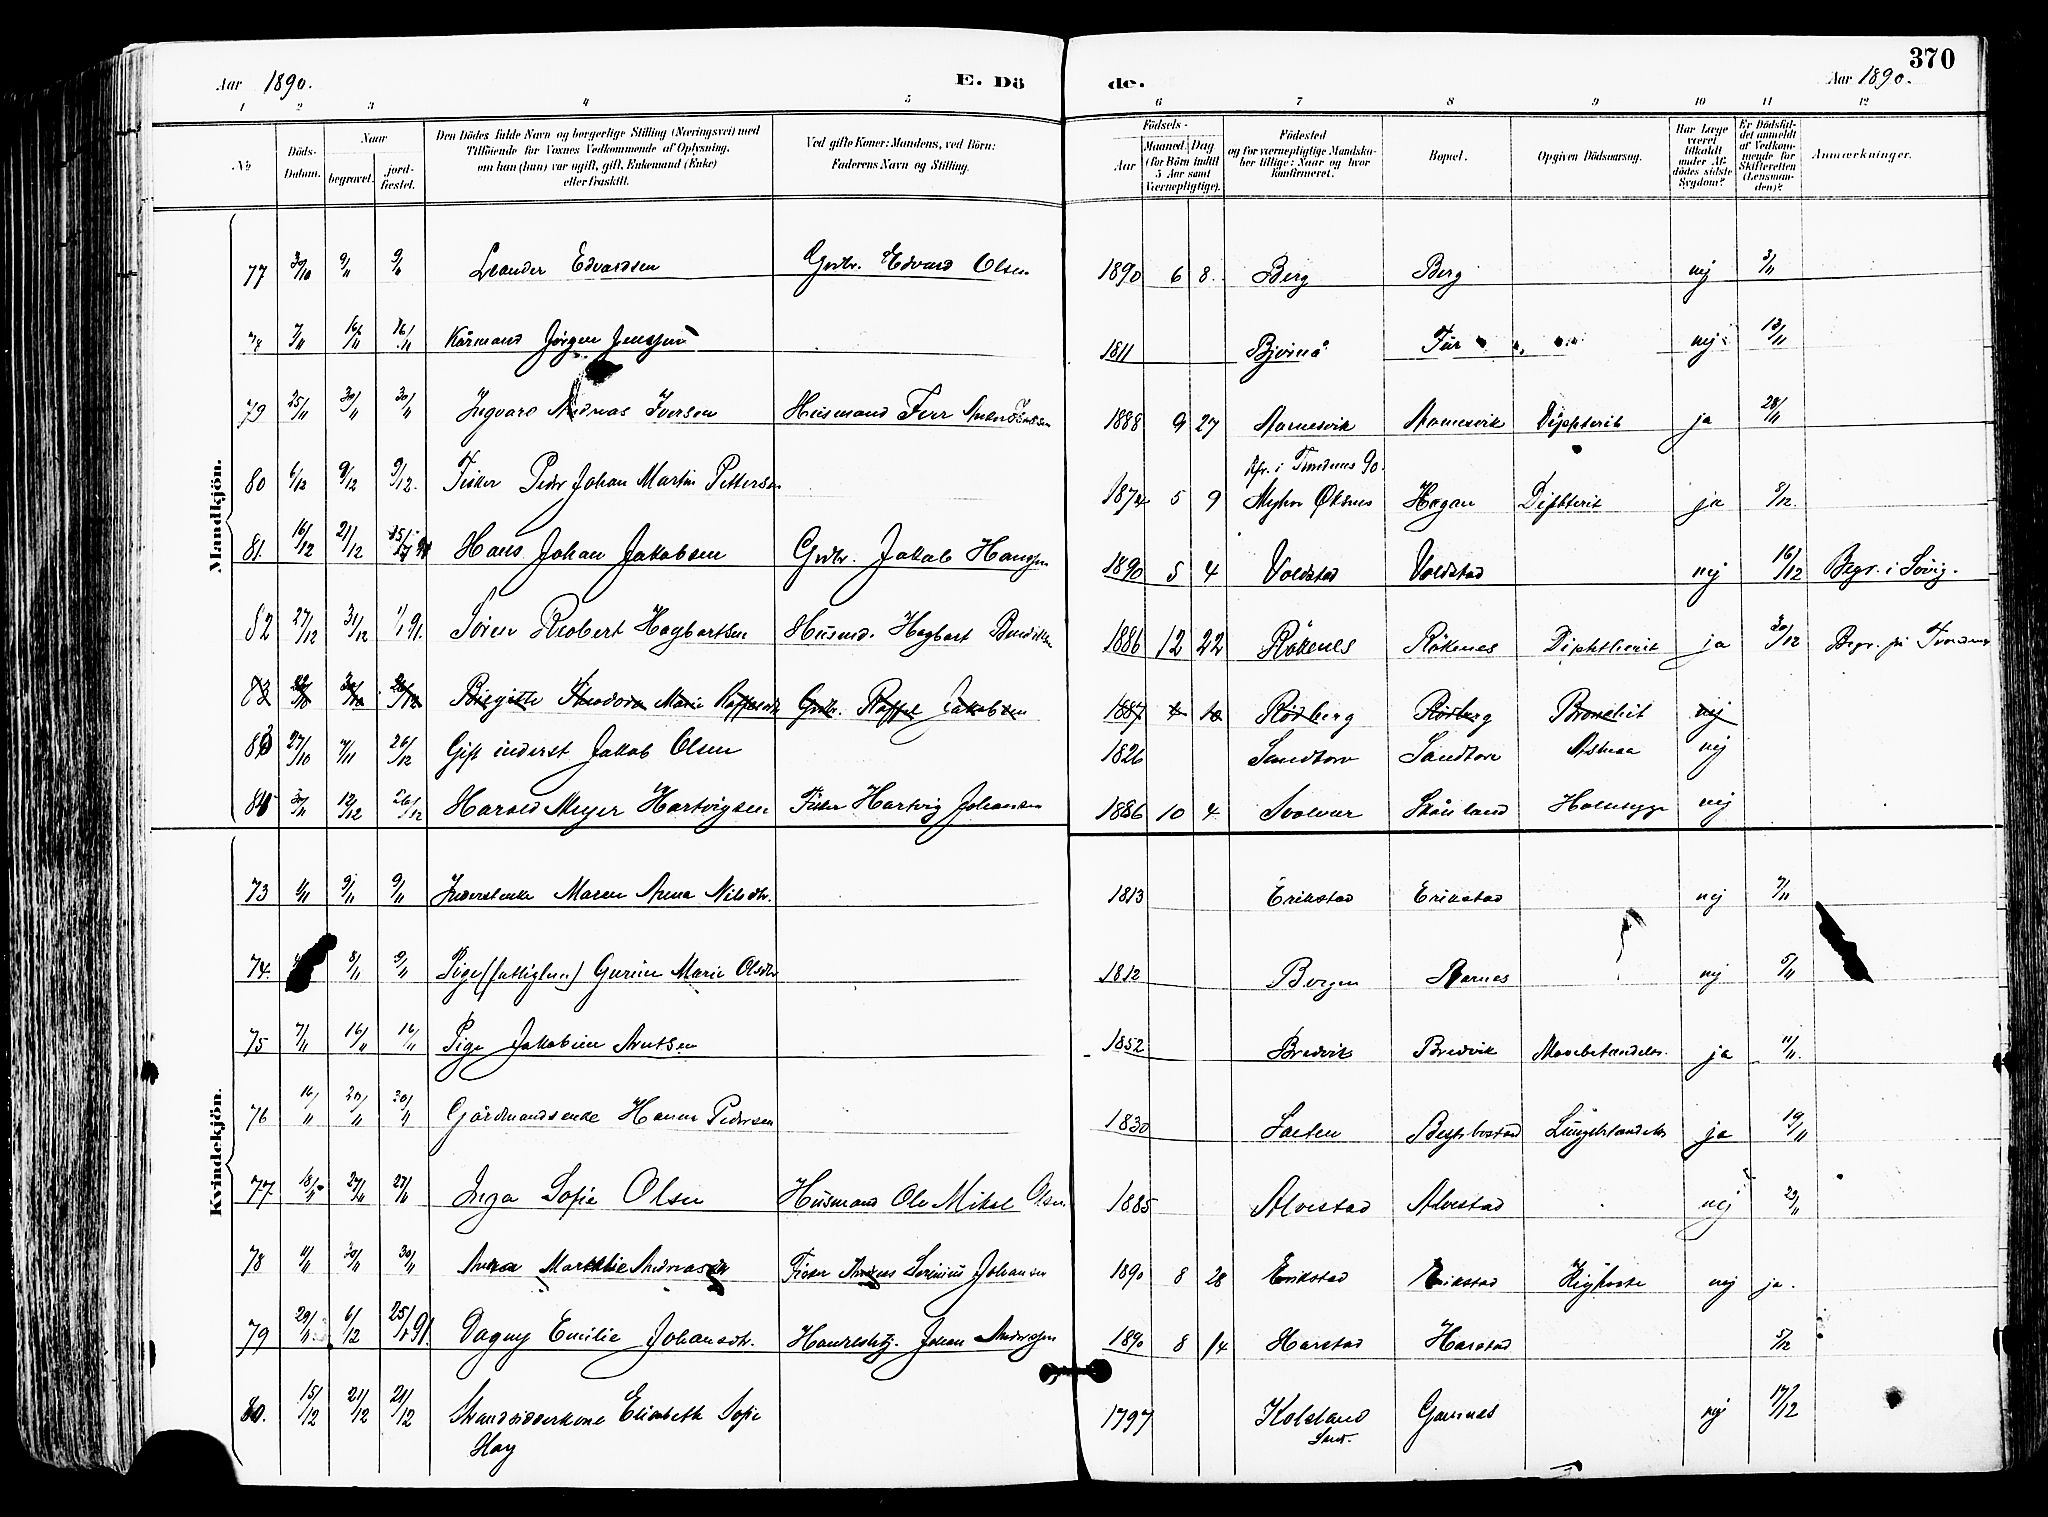 370
Aar 1890. E. Dö de. Aar 1890.
1 2 3 4 5 6 7 8 9 10 11 12
No. Döds-Datum. Naar begravet. jordfæstet. Den Dödes fulde Navn og borgerlige Stilling (Næringsvei) med Tilföiende for Voxnes Vedkommende af Oplysning, om han (hun) var ugift, gift, Enkemand (Enke) eller fraskilt. Ved gifte Koner: Mandens, ved Börn: Faderens Navn og Stilling. Födsels- Aar Maaned Dag (for Börn indtil 5 Aar samt Værnepligtige). Födested og for værnepligtige Mandskaber tillige: Naar og hvor konfirmeret. Bopæl. Opgiven Dödsaarsag. Har Læge været tilkaldt under Afdödes sidste Sygdom? Er Dödsfaldet anmeldt af Vedkommende for Skifteretten (Lensmanden)? Anmærkninger.
Mandkjön.
77 30/10 9/11 9/11 Leander Edvardsen Grdbr. Edvard Olsen 1890 6 8. Berg Berg nej 3/11
7/11 16/11 16/11 Kårmand Jörgen Jenssen 1811 nej 13/11
79 25/11 30/11 30/11 Ingvard Andreas Iversen Husmand Iver 1888 9 27 Aarnesvik Aarnesvik Diphterit ja 28/11
Kfr. i Trondenes 90.
80 6/12 9/12 9/12. Fisker Peder Johan Martin Pettersen 1874 5 9 Öksnes Hagan Diphterit ja 8/12.
81. 16/12 21/12 Hans Johan Jakobsen Grdbr. Jakob Hanssen 1890 5 4 Voldstad Voldstad nej 16/12 Begr. i Sörvig.
82 27/12 31/12 1/1 91. Sören Robert Hagbartsen Husmd. Hagbart 1886 12 22 Rökenes Rökenes Diphtherit ja 30/12 Begr. på Trondenes
83 Birgitte Theodora Marie Grdbr. Raffel Jakobsen 1887 4 10 Rödberg Rödberg Bronchit nej
83 27/10 7/11 26/12 Gift inderst Jakob Olsen 1826 Sandtorv Sandtorv Astma nej
84 30/11 12/12 26/12 Harald Meyer Hartvigsen Fisker Hartvig Johansen 1886 10 4 Svolvær Skånland Halssyge nej
Kvindekjön.
73 1/11 9/11 9/11 Inderstenke Maren Anna Nilsdtr. 1813 Erikstad Erikstad nej 7/11
74. 8/11 9/11 Pige (fattiglem) Gurine Marie Olsdtr 1812 Bergen nej 5/11
75 7/11 16/11 16/11 Pige Jakobine Arntsen 1852 Bredvik Bredvik Mavebetændelse. ja 11/11.
76 16/11 30/11 30/11 Gårdmandsenke Hanna Pedersen 1830 Sæten Lungebetændelse ja 19/11
77. 18/11 27/11 27/11 Inga Sofie Olsen Husmand Ole Mikal Olsen 1885 Alvestad Alvestad nej 23/11
78 11/11 30/11 30/11 Anna Mathilie Andreasen Fisker Andreas Sernius Johansen 1890 8 28 Erikstad Erikstad Kighoste nej ja.
79 29/11 6/12 25/1 91. Dagny Emilie Johansdtr. Handelsbetj. Johan Andersen 1890 8 14 Harstad Harstad 5/12
80. 15/12 21/12 21/12 Strandsidderkone Elisabeth Sofie 1797 Kolsland Gausnes nej 17/12
Hay Sand.